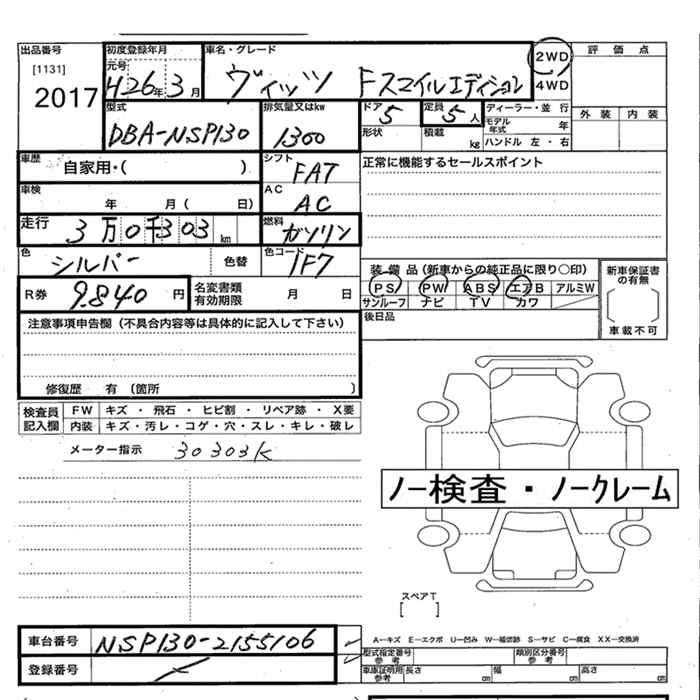 出品番号 [1131] 2017
初度登録年月 元号 H26年3月
車名・グレード ヴィッツ Fスマイルエディション
2WD 4WD
評価点
外装 内装
型式 DBA-NSP130
排気量又はkw 1300
ドア 5 形状
定員 5人 積載 kg
ディーラー・並行
モデル年式 年
ハンドル 左・右
車歴 自家用・( )
シフト FAT
正常に機能するセールスポイント
車検 年 月( 日)
AC AC
走行 3万0千303km
燃料 ガソリン
色 シルバー 色替
色コード 1F7
装備品(新車からの純正品に限り○印)
PS PW ABS エアB アルミW
サンルーフ ナビ TV カワ
新車保証書の有無
車載不可
R券 9.840円
名変書類有効期限 月 日
後日品
注意事項申告欄(不具合内容等は具体的に記入して下さい)
修復歴 有(箇所 )
検査員記入欄
FW キズ・飛石・ヒビ割・リペア跡・X要
内装 キズ・汚レ・コゲ・穴・スレ・キレ・破レ
メーター指示 30303K
ノー検査・ノークレーム
スペアT
[ ]
車台番号 NSP130-2155106
登録番号
A-キズ E-エクボ U-凹み W-補修跡 S-サビ C-腐食 XX-交換済
型式指定番号 参考
類別区分番号 参考
車庫証明用 参考 長さ cm 幅 cm 高さ cm